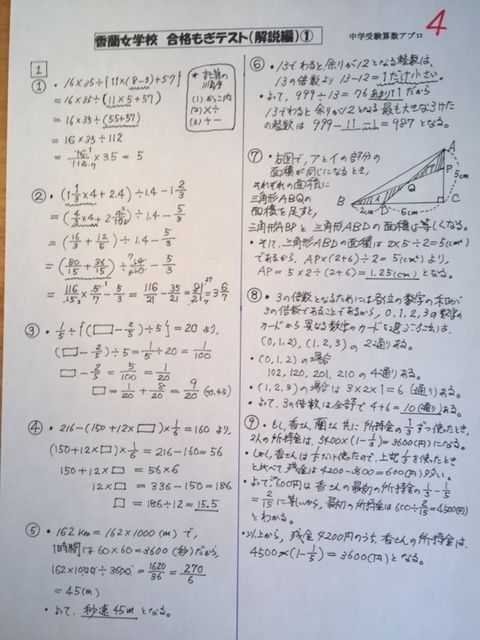 香蘭女学校 合格もぎテスト(解説編)①
中学受験算数アプロ
4
1
① ・16×35÷{11×(8-3)+57}
=16×35÷(11×5+57)
=16×35÷(55+57)
=16×35÷112
=16/112×35=5
* 計算の順序
(1) かっこ内
(2) ×÷
(3) +-
② ・(1 1/3×4+2.4)÷1.4-1 2/3
=(4/3×4+2 4/10)÷1.4-5/3
=(16/3+12/5)÷1.4-5/3
=(80/15+36/15)÷14/10-5/3
=116/15×5/7-5/3=116/21-35/21=81/21=3 6/7
③ ・1/5÷{(□-2/5)÷5}=20 より、
(□-2/5)÷5=1/5÷20=1/100
□-2/5=5/100=1/20
□=1/20+8/20=9/20 (0.45)
④ ・216-(150+12×□)×1/6=160 より、
(150+12×□)×1/6=216-160=56
150+12×□=56×6
12×□=336-150=186
□=186÷12=15.5
⑤ ・162km=162×1000(m)で、
1時間は60×60=3600(秒)だから、
162×1000÷3600=1620/36=270/6
=45(m)
・よって、秒速45mとなる。
⑥ ・13でわると余りが12となる整数は、
13の倍数より13-12=1だけ小さい。
・よって、999÷13=76あまり11だから
13でわると余りが12となる最大な3けた
の整数は999-11-1=987となる。
⑦ ・右図で、アとイの部分の
面積が同じになるとき、
それぞれの面積に
三角形ABQの
面積を足すと、
三角形ABPと三角形ABDの面積は等しくなる。
A
P
Q
B
D
C
5cm
2cm
6cm
・そして、三角形ABDの面積は2×5÷2=5(cm²)
であるから、AP×(2+6)÷2=5(cm²)より、
AP=5×2÷(2+6)=1.25(cm)となる。
⑧ ・3の倍数となるためには各位の数字の和が
3の倍数であることであるから、0,1,2,3の数字の
カードから異なる数字のカードを選ぶことは、
(0,1,2),(1,2,3)の2通りある。
・(0,1,2)の場合
102,120,201,210の4通りある。
・(1,2,3)の場合は3×2×1=6(通り)ある。
・よって、3の倍数は全部で4+6=10(通り)ある。
⑨ ・もし、香さん、蘭さん共に所持金の1/3ずつ使ったとき、
2人の所持金は、5400×(1-1/3)=3600(円)になる。
・しかし、香さんは1/5だけ使ったので、上記を使ったとき
と比べて、残金は4200-3600=600(円)多い。
・よって、600円は香さんの最初の所持金の1/3-1/5
=2/15に等しいから、最初の所持金は600÷2/15=4500(円)
とわかる。
・以上から、残金4200円のうち、香さんの所持金は、
4500×(1-1/5)=3600(円)となる。